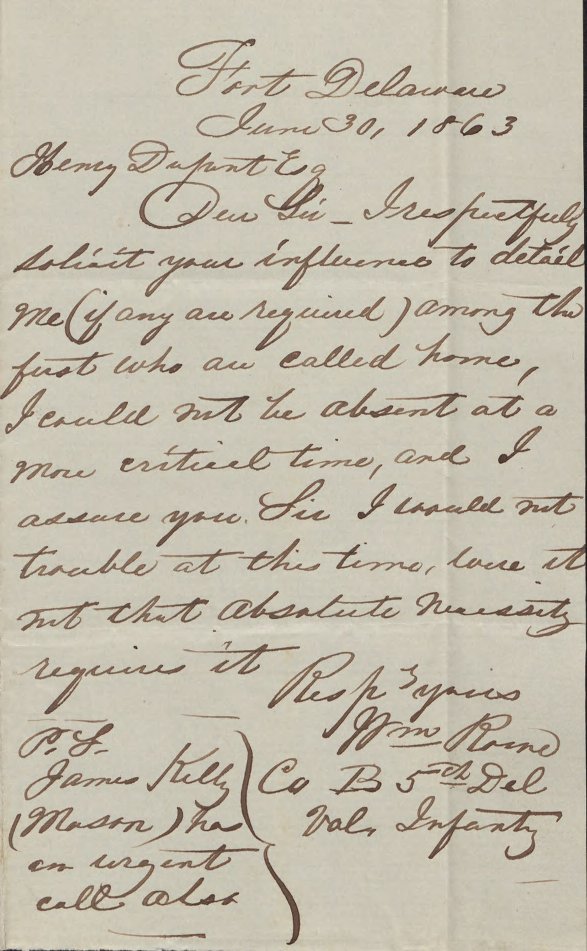 Fort Delaware
June 30, 1863
Henry Dupont Esq
Dear Sir - I respectfully
solicit your influence to detail
me (if any are required) among the
first who are called home,
I could not be absent at a
more critical time, and I
assure you Sir I would not
trouble at this time, were it
not that absolute necessity
requires it
Respy yours
Wm
Co B 5th Del
Vol. Infantry
P.S.
James Kelly
(Mason) has
an urgent
call also